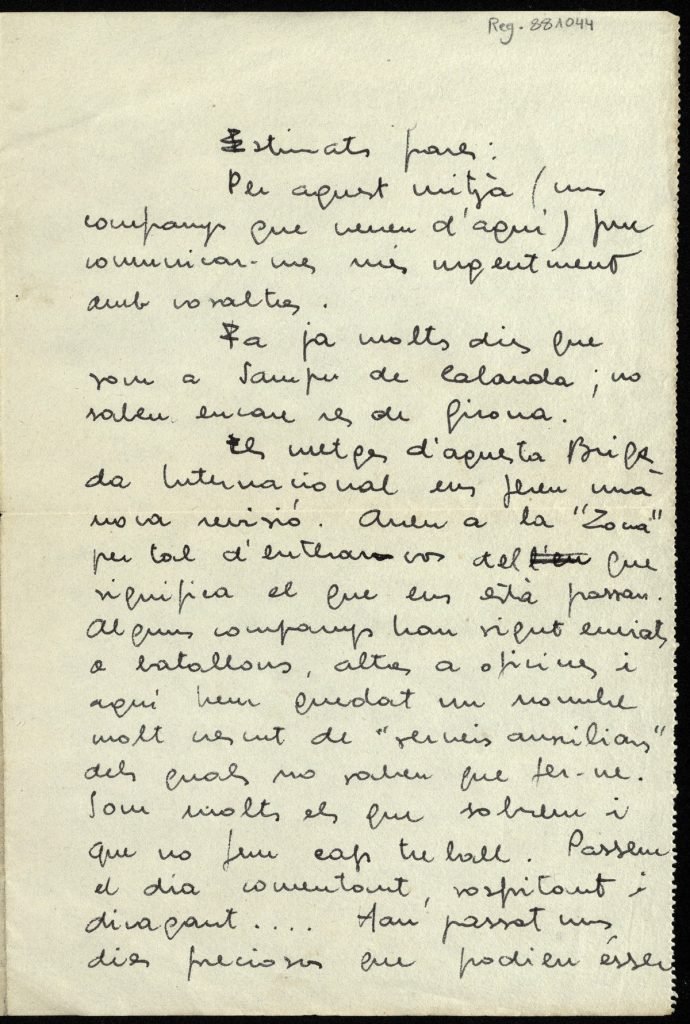 Reg. 881044
Estimats pares:
Per aquest mitjà (uns
companys que venen d'aquí) puc
comunicar-me més urgentment
amb vosaltres.
Fa ja molts dies que
som a Samper de Calanda; no
sabem encare res de Girona.
Els metges d'aquesta Briga-
da Internacional ens feren una
nova revisió. Aneu a la "Zona"
per tal d'entera-vos del que
significa el que ens està passan.
Alguns companys han sigut enviats
a batallons, altres a oficines i
aquí hem quedat un nombre
molt crescut de "serveis auxiliars"
dels quals no saben que fer-ne.
Som molts els que sobrem i
que no fem cap treball. Passem
el dia comentant, sospitant i
divagant.... Han passat uns
dies preciosos que podien ésser